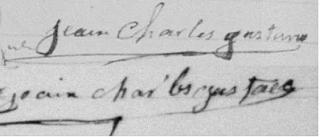 jean charles gustave
jean char'les gustave